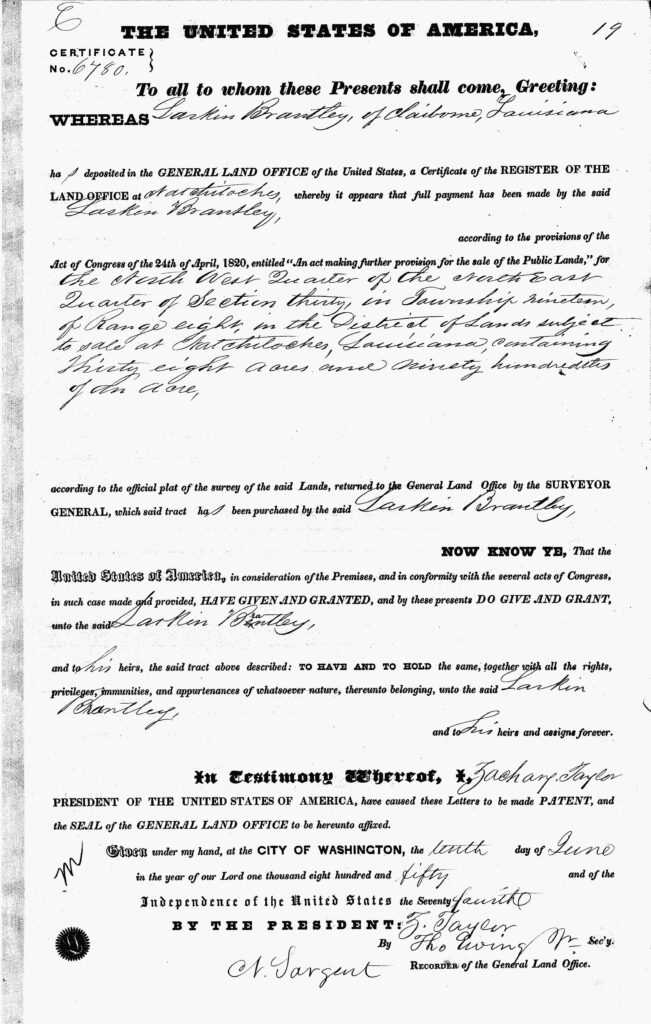 C
THE UNITED STATES OF AMERICA,
19
CERTIFICATE
No. 6780.
To all to whom these Presents shall come, Greeting:
WHEREAS Larkin Brantley, of Claiborne, Louisiana
has deposited in the GENERAL LAND OFFICE of the United States, a Certificate of the REGISTER OF THE
LAND OFFICE at Natchitoches, whereby it appears that full payment has been made by the said
Larkin Brantley,
according to the provisions of the
Act of Congress of the 24th of April, 1820, entitled "An act making further provision for the sale of the Public Lands," for
the North West Quarter of the North East
Quarter of Section thirty, in Township nineteen,
of Range eight, in the District of Lands subject
to sale at Natchitoches, Louisiana, containing
Thirty eight acres and ninety hundredths
of an Acre,
according to the official plat of the survey of the said Lands, returned to the General Land Office by the SURVEYOR
GENERAL, which said tract has been purchased by the said Larkin Brantley,
NOW KNOW YE, That the
United States of America, in consideration of the Premises, and in conformity with the several acts of Congress,
in such case made and provided, HAVE GIVEN AND GRANTED, and by these presents DO GIVE AND GRANT,
unto the said Larkin Brantley,
and to his heirs, the said tract above described: TO HAVE AND TO HOLD the same, together with all the rights,
privileges, immunities, and appurtenances of whatsoever nature, thereunto belonging, unto the said Larkin
Brantley,
and to his heirs and assigns forever.
In Testimony Whereof, I, Zachary Taylor
PRESIDENT OF THE UNITED STATES OF AMERICA, have caused these Letters to be made PATENT, and
the SEAL of the GENERAL LAND OFFICE to be hereunto affixed.
Given under my hand, at the CITY OF WASHINGTON, the tenth day of June
in the year of our Lord one thousand eight hundred and fifty and of the
Independence of the United States the Seventy fourth
BY THE PRESIDENT: Z. Taylor
By Tho Ewing Jr. Sec'y.
N. Sargent RECORDER of the General Land Office.